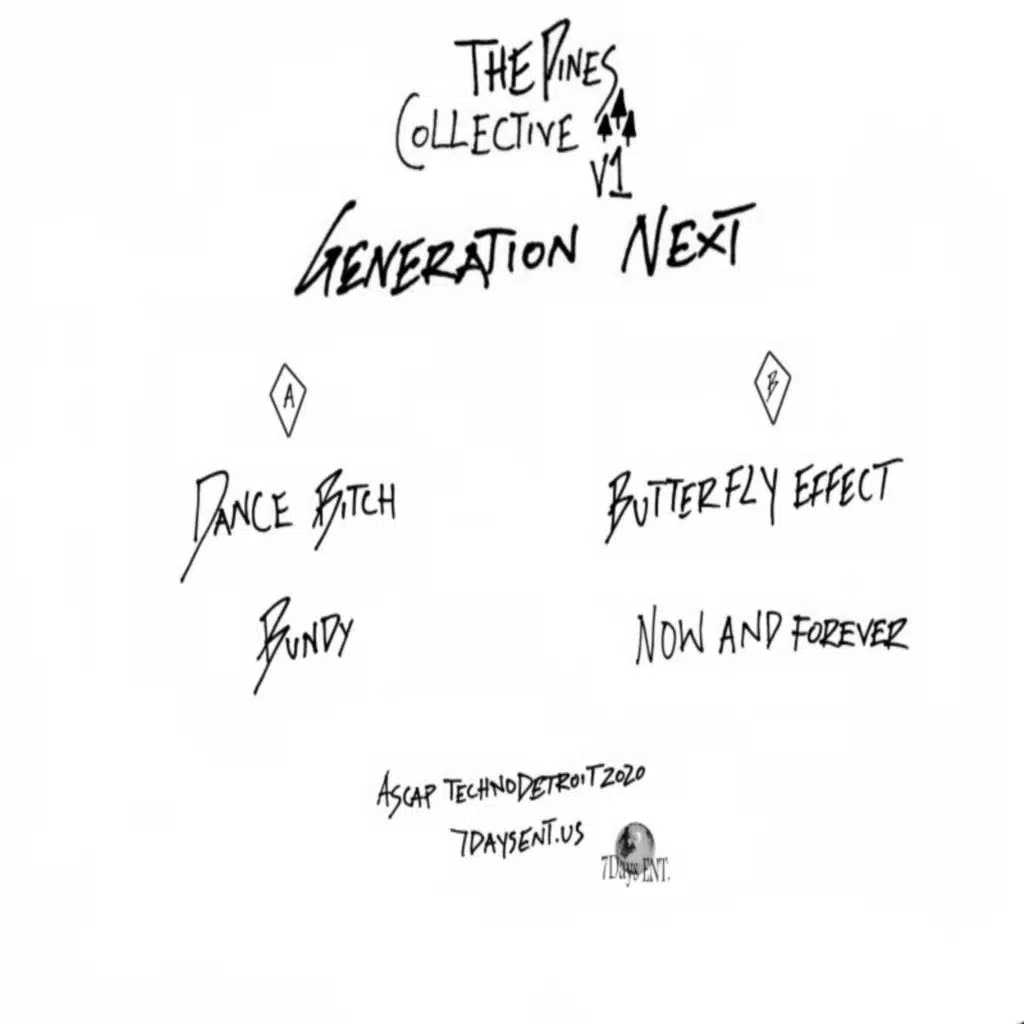 THE PINES
COLLECTIVE
V1
GENERATION NEXT
A
DANCE BITCH
BUNDY
B
BUTTERFLY EFFECT
NOW AND FOREVER
ASCAP TECHNODETROIT2020
7DAYSENT.US
7Days ENT.